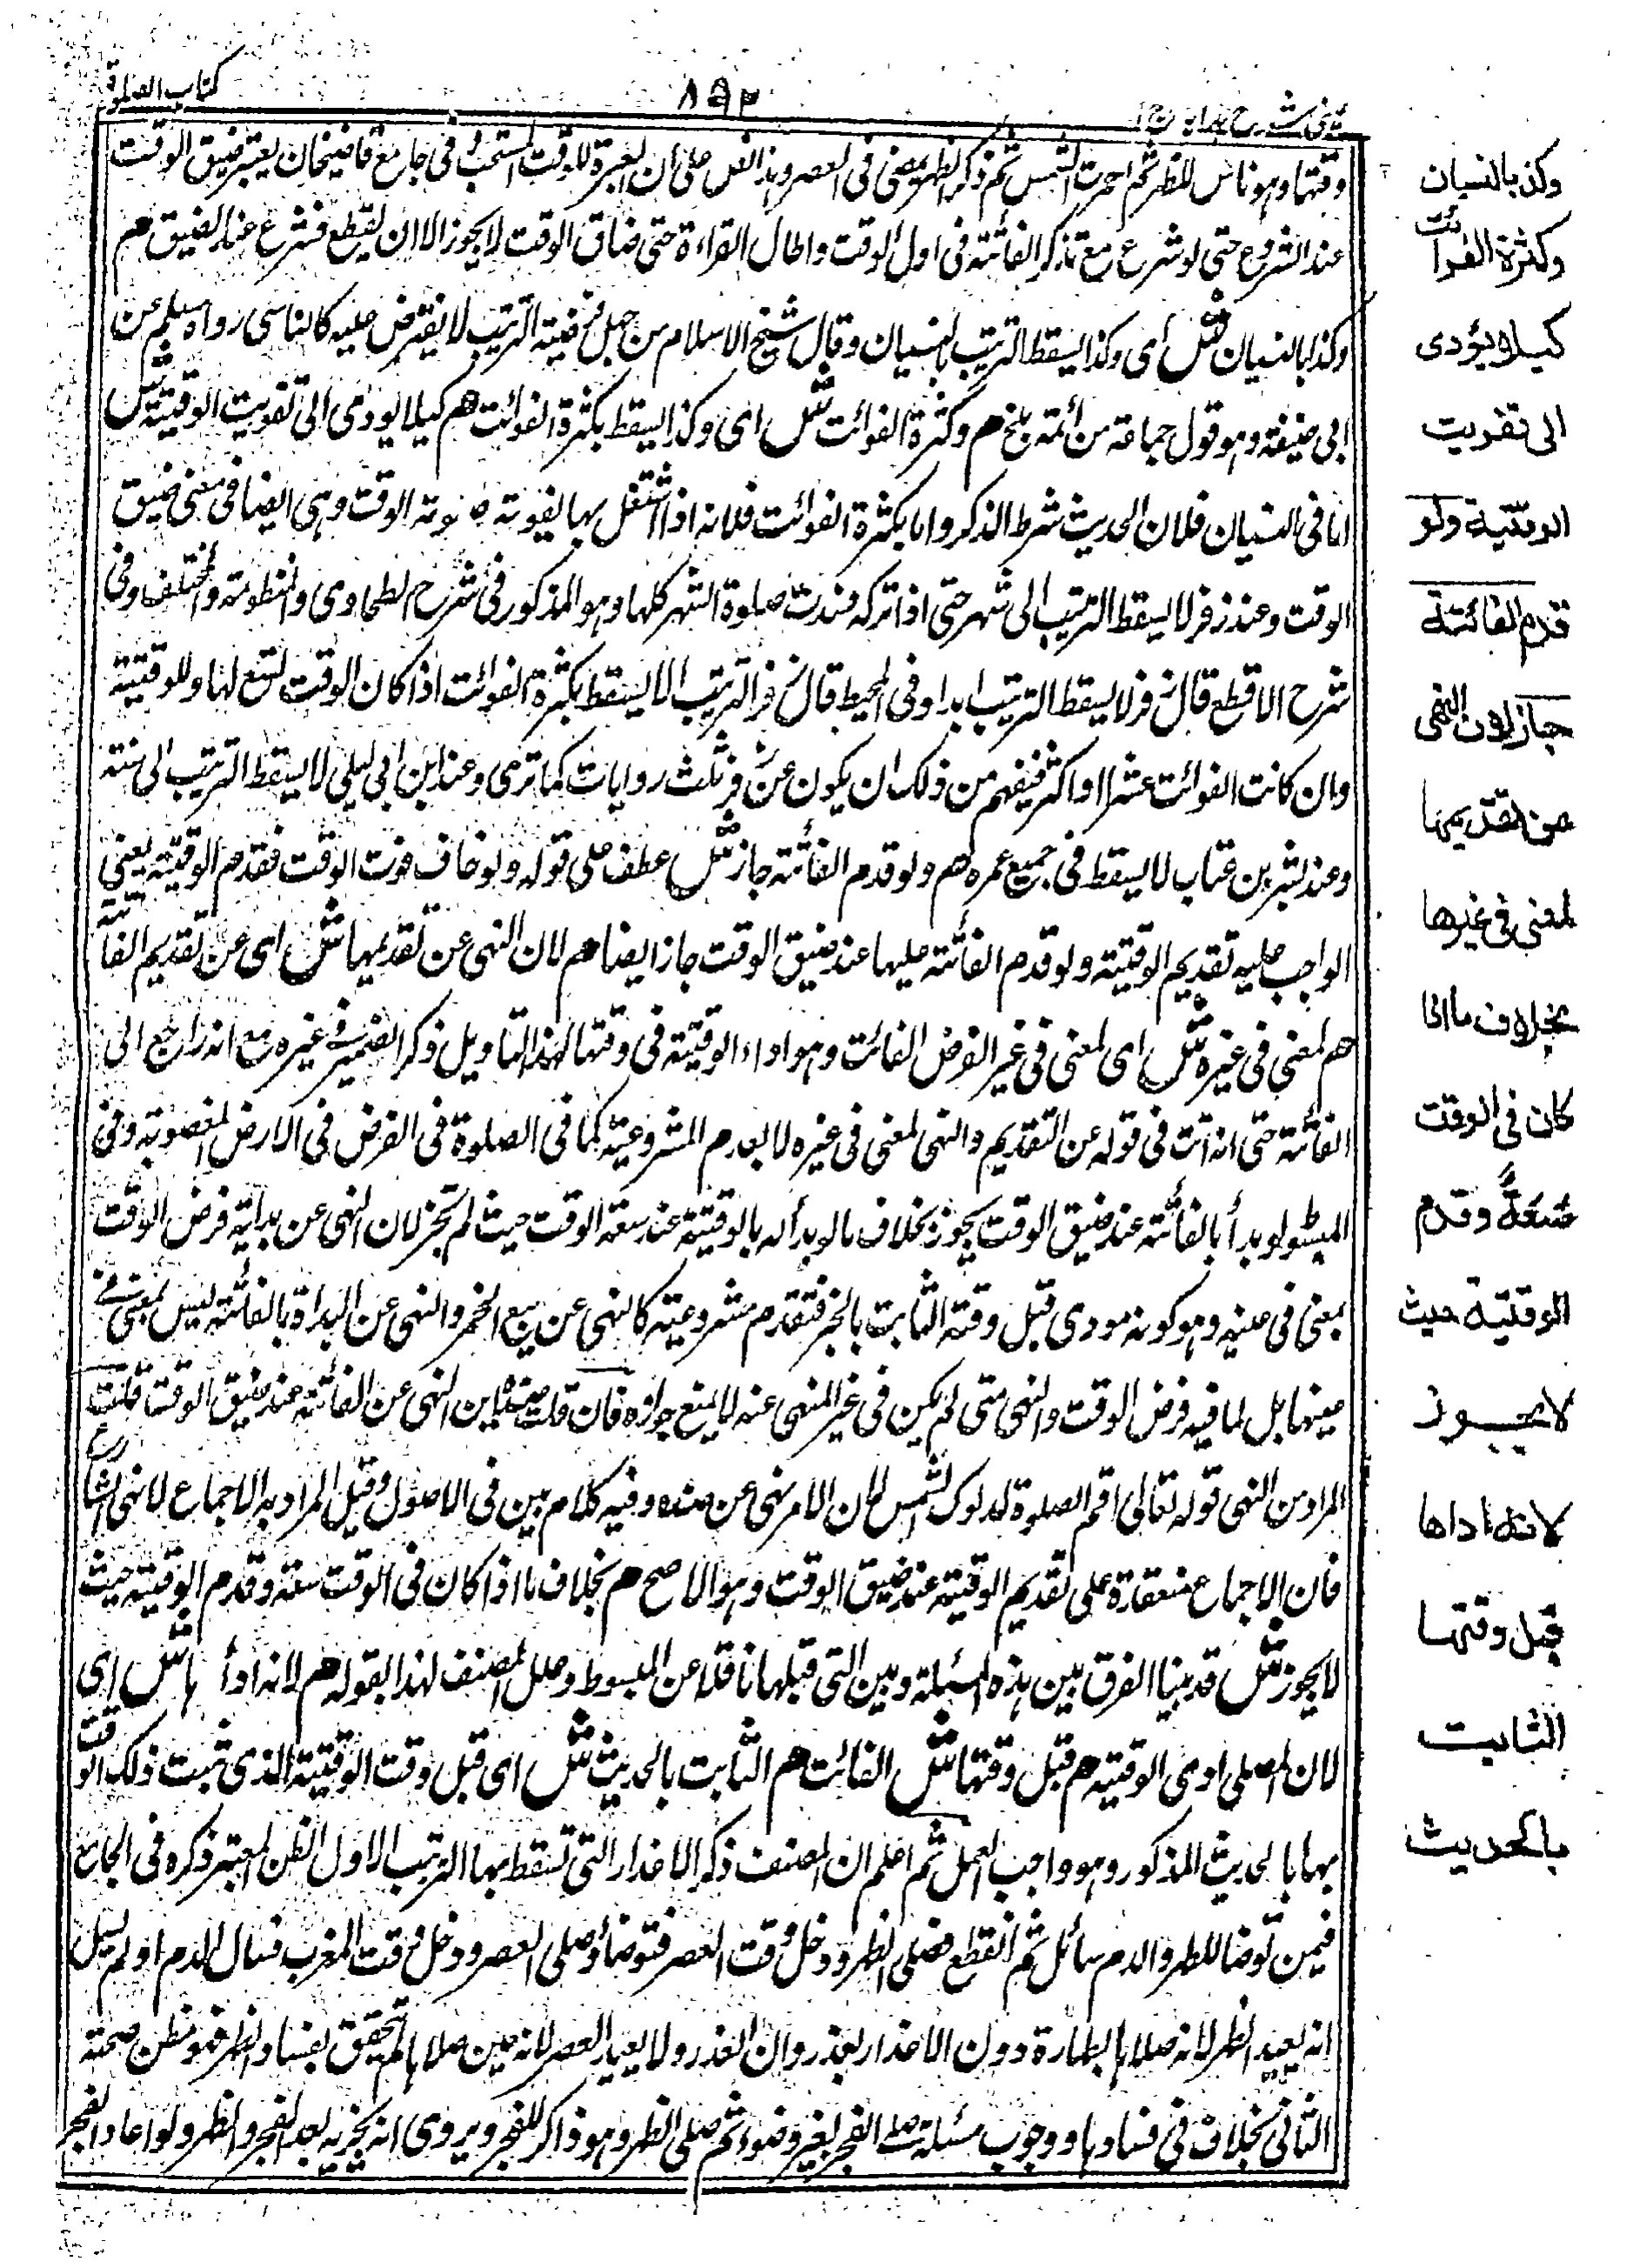 كتاب الصلوة
٨٩٢
عينى شرح هدايه ج١
وقتها وهو ناس للظهر ثم احمرت الشمس ثم ذكر الظهر يمضى فى العصر وهذا نص على ان العبرة للوقت المستحب فى جامع قاضيخان يعتبر ضيق الوقت
عند الشروع حتى لو شرع مع تذكر الفائتة فى اول الوقت واطال القراءة حتى ضاق الوقت لا يجوز الا ان يقطع فشرع عند الضيق هم
وكذا بالنسيان ش اى وكذا يسقط الترتيب بالنسيان وقال شيخ الاسلام من جهل فرضية الترتيب لا يفترض عليه كالناسى رواه مسلم عن
ابى حنيفة وهو قول جماعة من ائمة بلخ هم وكثرة الفوائت ش اى وكذا يسقط بكثرة الفوائت هم كيلا يودى الى تفويت الوقتية ش
اما فى النسيان فلان الحديث شرط الذكر واما بكثرة الفوائت فلانه اذا اشتغل بها يفوته الوقت وهى ايضا فى معنى ضيق
الوقت وعند زفر لا يسقط الترتيب الى شهر حتى اذا تركه فسدت صلوة الشهر كلها وهو المذكور فى شرح الطحاوى والمنظومة والمختلف وفى
شرح الاقطع قال زفر لا يسقط الترتيب ابدا وفى المحيط قال زفر الترتيب لا يسقط بكثرة الفوائت اذا كان الوقت تسع لها وللوقتية
وان كانت الفوائت عشرا او اكثر فيفهم من ذلك ان يكون عن زفر ثلث روايات كما ترى وعند ابن ابى ليلى لا يسقط الترتيب الى سنة
وعند بشر بن غياث لا يسقط فى جميع عمره هم ولو قدم الفائتة جاز ش عطف على قوله ولو خاف فوت الوقت فقدم الوقتية يعنى
الواجب عليه تقديم الوقتية ولو قدم الفائتة عليها عند ضيق الوقت جاز ايضا هم لان النهى عن تقديمها ش اى عن تقديم الفائتة
هم لمعنى فى غيره ش اى لمعنى فى غير الفرض الفائت وهو اداء الوقتية فى وقتها لهذا التاويل ذكر الضمير فى غيره مع انه راجع الى
الفائتة حتى انه انث فى قوله عن التقديم والنهى لمعنى فى غيره لا يعدم المشروعية كما فى الصلوة فى الفرض فى الارض المغصوبة وفى
المبسوط لو بدأ بالفائتة عند ضيق الوقت يجوز بخلاف ما لو بدأ له بالوقتية عند سعة الوقت حيث لم تجز لان النهى عن بداية فرض الوقت
بمعنى فى عينه وهو كونه مودى قبل وقته الثابت بالخبر فتقدم مشروعيته كالنهى عن بيع الخمر والنهى عن البداة بالفائتة ليس لمعنى فى
عينها بل لما فيه فرض الوقت والنهى متى لم يكن فى غير المنهى عنه لا يمنع جوازه فان قلت من اين النهى عن الفائتة عند ضيق الوقت قلت
المراد من النهى قوله تعالى اقم الصلوة لدلوك الشمس لان الامر نهى عن ضده وفيه كلام بين فى الاصول وقيل المراد به الاجماع لا نهى الشارع
فان الاجماع منعقدة على تقديم الوقتية عند ضيق الوقت وهو الاصح هم بخلاف ما اذا كان فى الوقت سعة وقدم الوقتية حيث
لا يجوز ش قد بينا الفرق بين هذه المسئلة وبين التى قبلها ناقلا عن المبسوط وعلل المصنف لهذا بقوله هم لانه ادأ ها ش اى
لان المصلى ادى الوقتية هم قبل وقتها ش الفائت هم الثابت بالحديث ش اى قبل وقت الوقتية الذى ثبت ذلك الوقت
بها بالحديث المذكور وهو واجب العمل ثم اعلم ان المصنف ذكر الاعذار التى تسقط بها الترتيب الاول الظن المعتبر ذكره فى الجامع
فيمن توضا للظهر والدم سائل ثم انقطع فصلى الظهر ودخل وقت العصر فتوضأ وصلى العصر ودخل وقت المغرب فسال الدم او لم يسل
انه يعيد الظهر لانه صلاها بطهارة دون الاعذار بعذر وان العذر ولا يعيد العصر لانه حين صلاها لم يتحقق بفساد الظهر فهو مظن صحته
الثانى بخلاف فى فسادها ووجوب مسئلة صلى الفجر بغير وضوء ثم صلى الظهر وهو ذاكر للفجر ويروى انه يجزيه بعد الفجر والظهر ولو اعاد الفجر
وكذا بالنسيان
وكثرة الفوائت
كيلا يؤدى
الى تفويت
الوقتية ولو
قدم الفائتة
جاز لان النهى
عن تقديمها
لمعنى فى غيرها
بخلاف ما اذا
كان فى الوقت
سعة وقدم
الوقتية حيث
لا يجوز
لانه اداها
قبل وقتها
الثابت
بالحديث